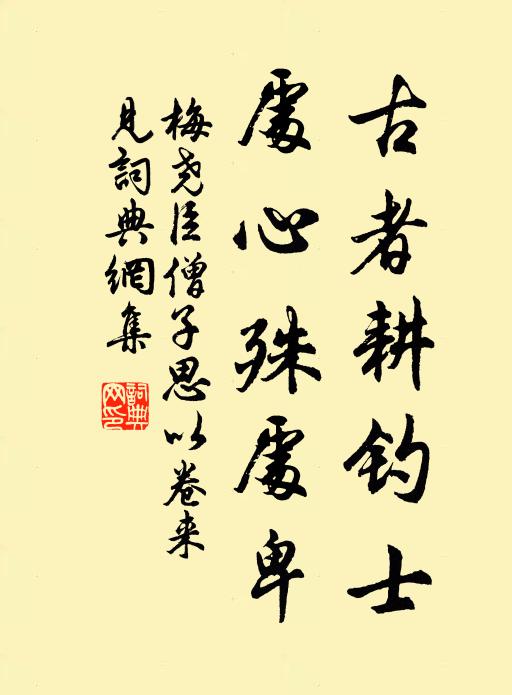 古者耕钓士
處心殊處卑
梅尧臣僧子思以卷来
見詞典網集
詞典網印